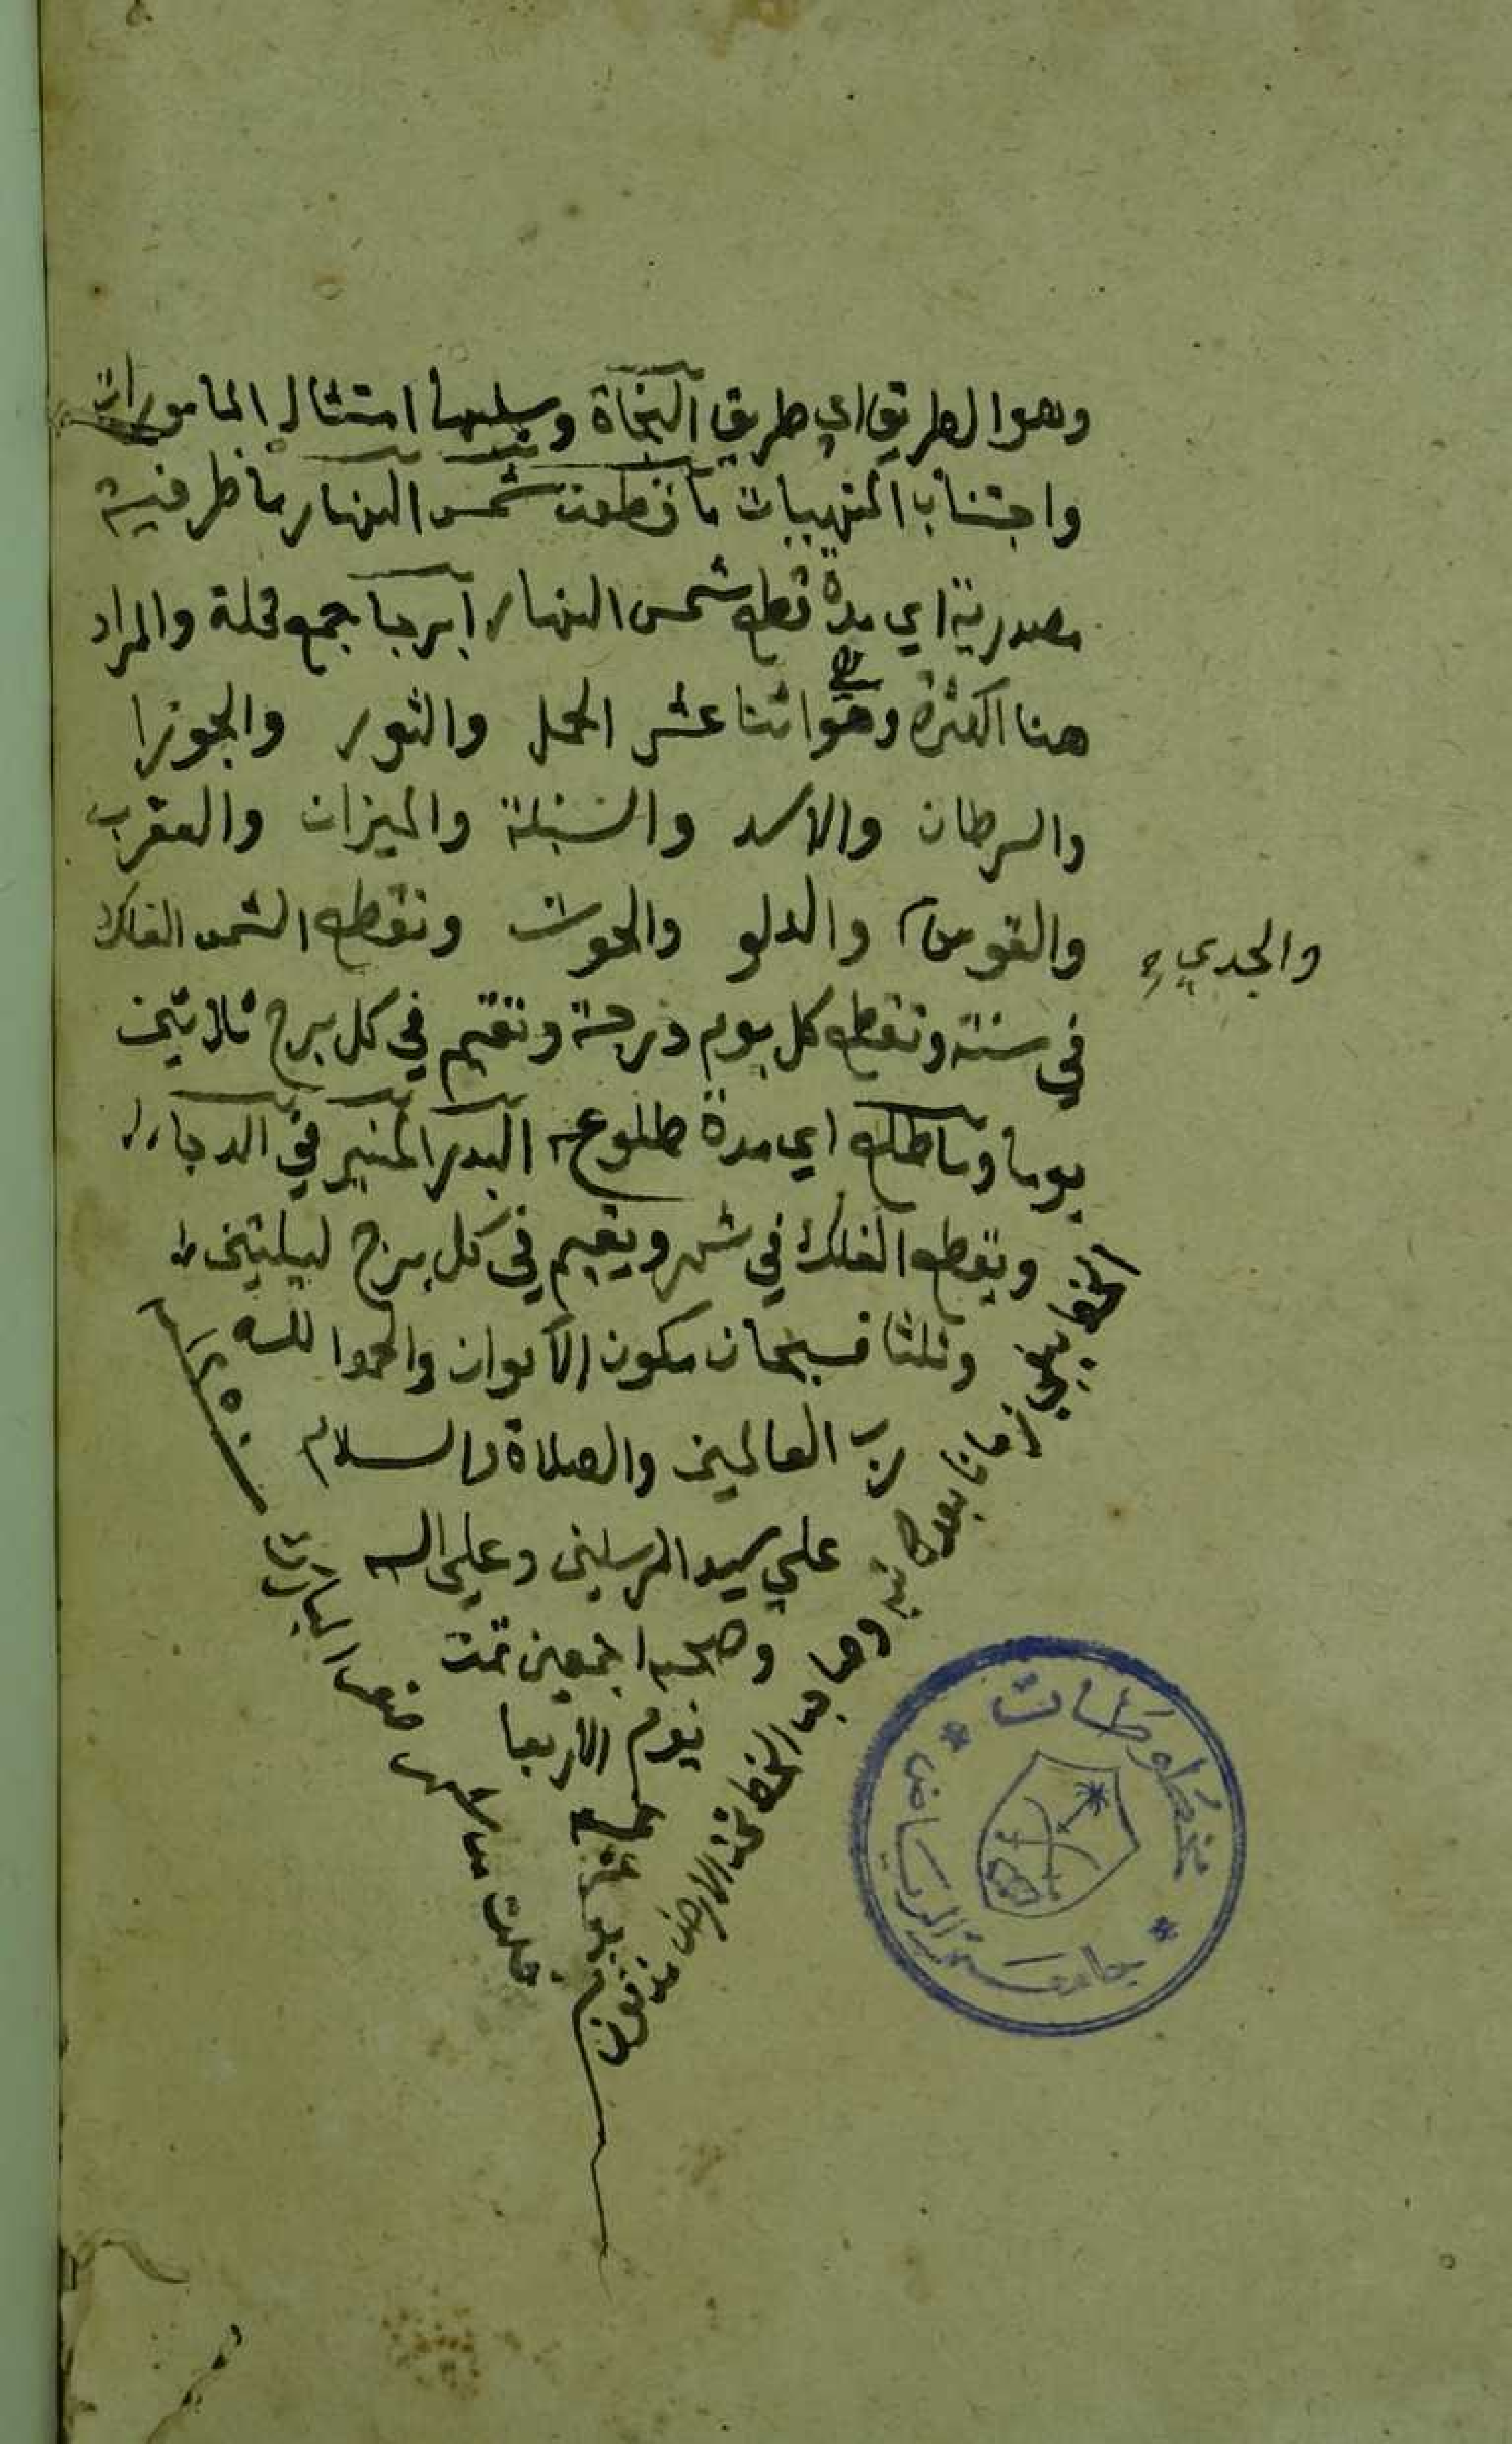 وهو الطريق اي طريق النجاة وسلبها امتثال المامورات
واجتناب المنهييات ما قطعت شمس النهار ما ظرفية
مصدرية اي مدة قطع شمس النهار ابرجا جمع قلة والمراد
هنا الكثرة وهي اثنا عشر الحمل والثور والجوزا
والسرطان والاسد والسنبلة والميزان والعقرب
والقوس والدلو والحوت وتقطع الشمس الفلك
والجدي
في سنة وتقطع كل يوم درجة وتقيم في كل برج ثلاثين
يوما وما طلع اي مدة طلوع البدر المنير في الدجا
ويقطع الفلك في شهر ويقيم في كل برج ليلتين
وثلثا فسبحان مكون الاكوان والحمد لله
رب العالمين والصلاة والسلام
علي سيد المرسلين وعلي اله
وصحبه اجمعين تمت
يوم الاربعا
خلت من شهر صفر المبارك
١٢٥٠
الخط يبقي زمانا بعد كاتبه وصاحب الخط تحت الارض مدفون
مخطوطات
جامعة الرياض